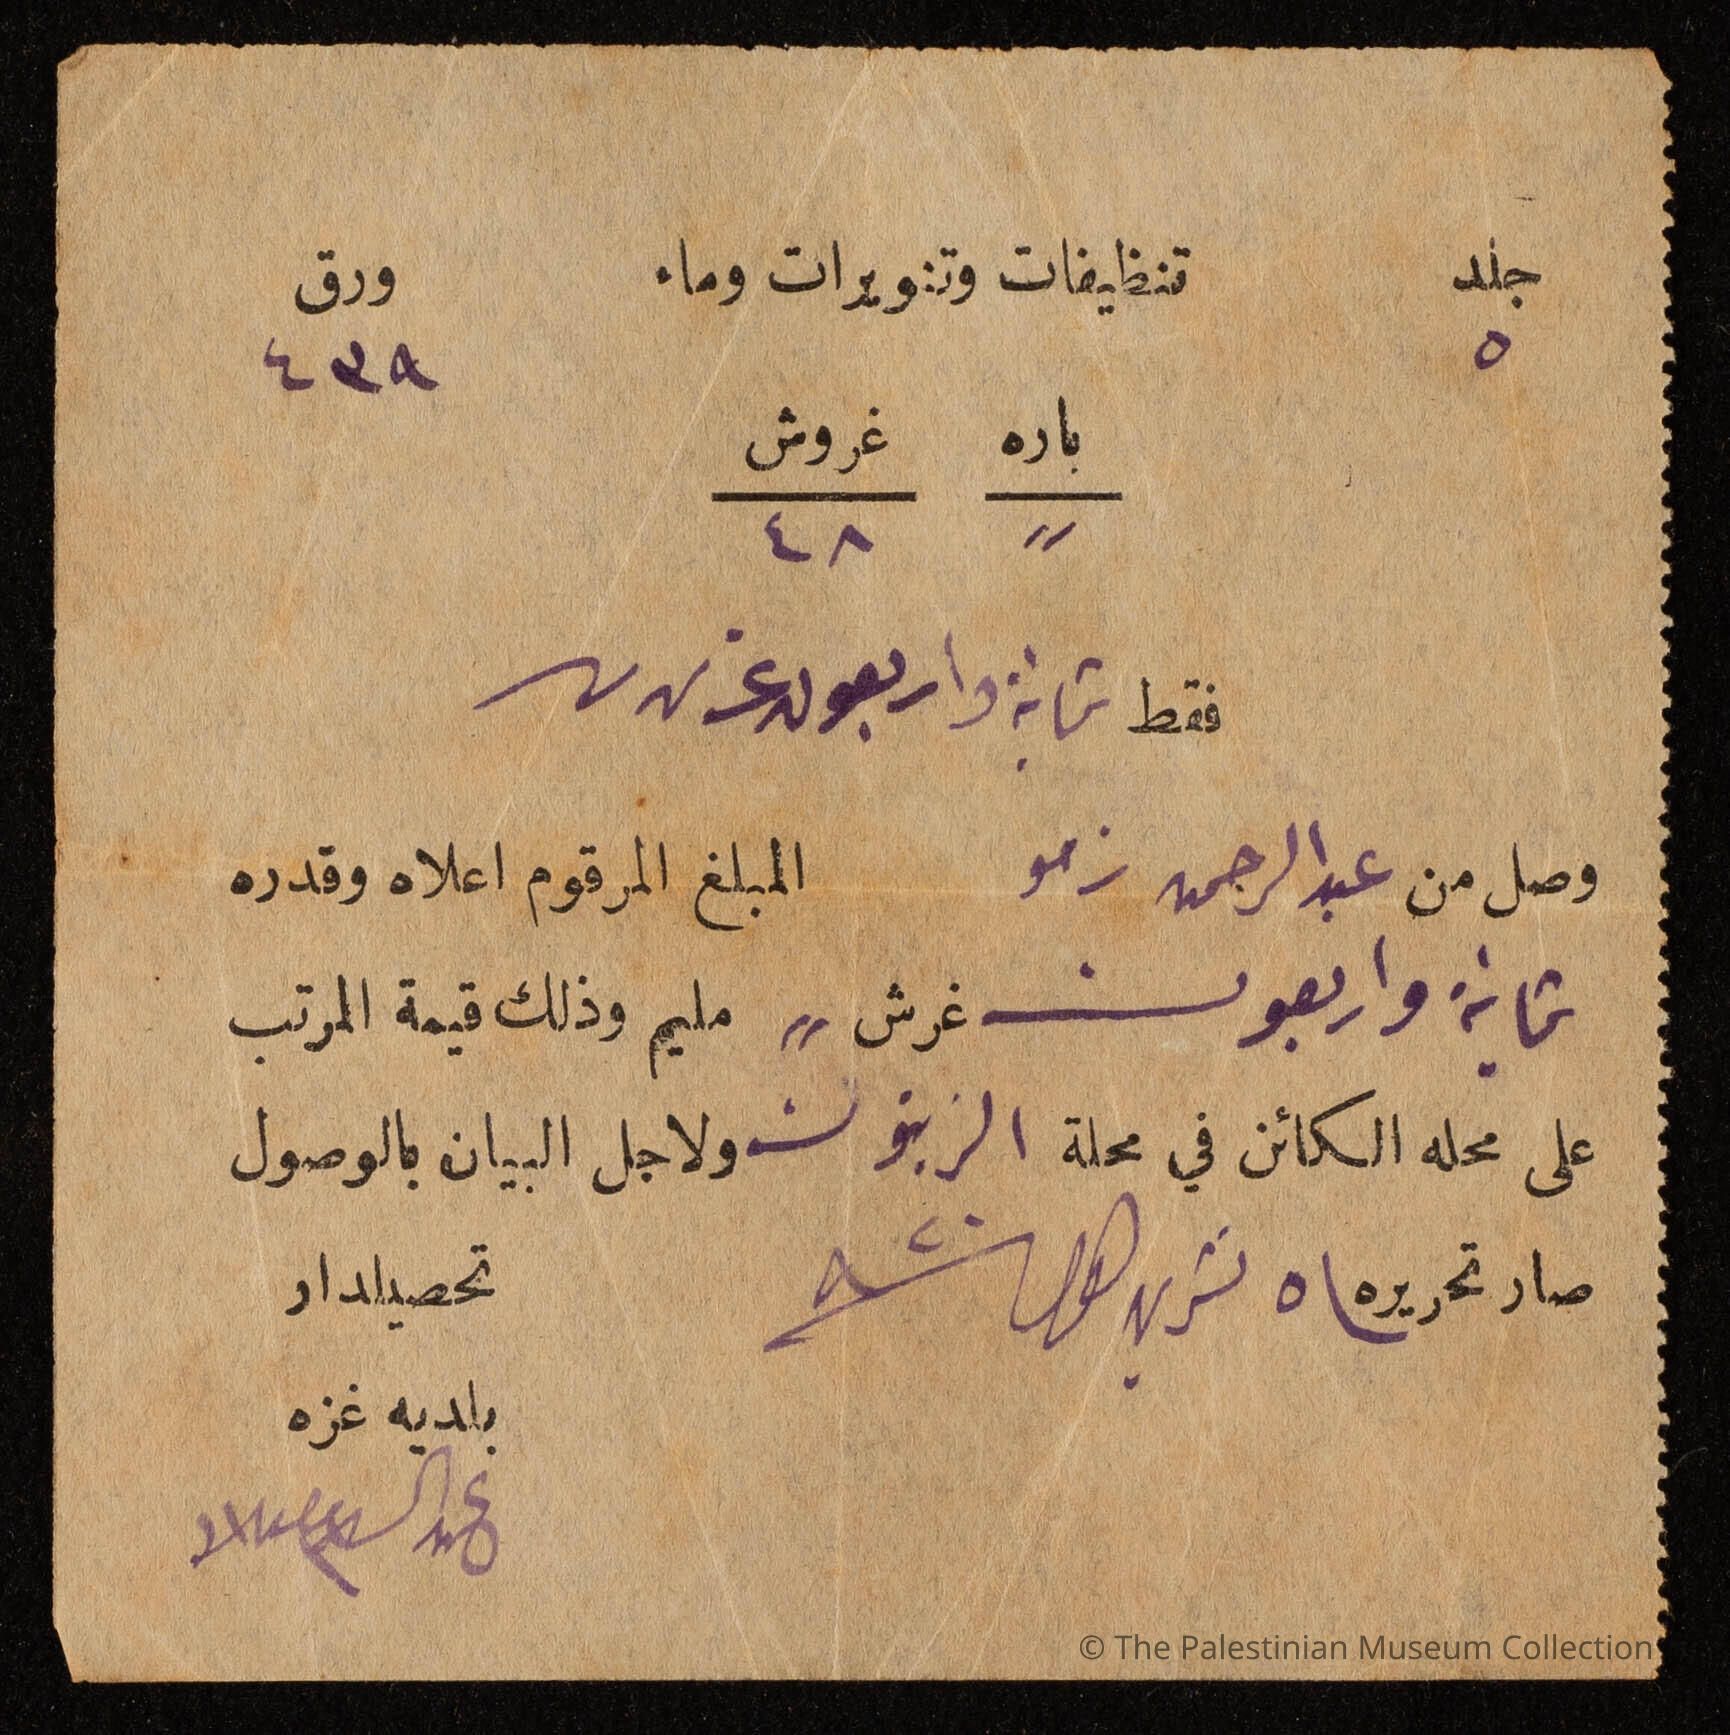 جلد تنظيفات وتنويرات وماء ورق
٥ ٤٣٩
باره غروش
〃 ٤٨
فقط ثمانية واربعون غرش
وصل من عبدالرحمن زمو المبلغ المرقوم اعلاه وقدره
ثمانية واربعون غرش 〃 مليم وذلك قيمة المرتب
على محله الكائن في محلة الزيتون ولاجل البيان بالوصول
صار تحريره ٥ تشرين اول تحصيلدار
بلديه غزه
© The Palestinian Museum Collection